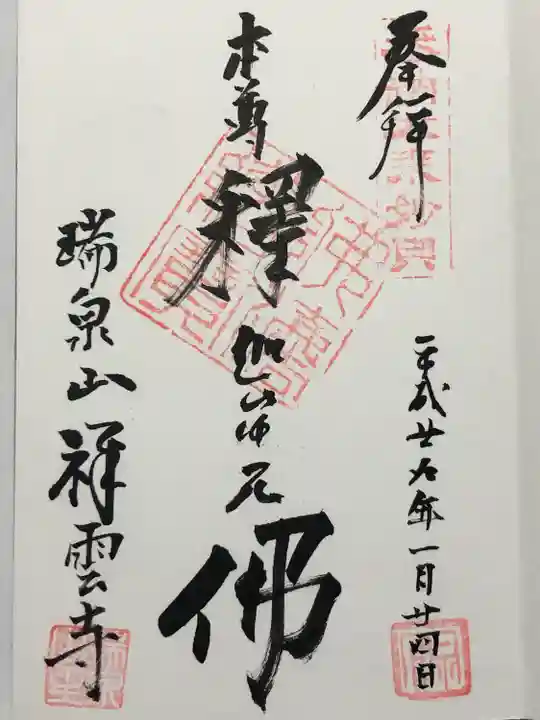 奉拝
平成廿九年一月廿四日
本尊 釋迦牟尼佛
瑞泉山祥雲寺